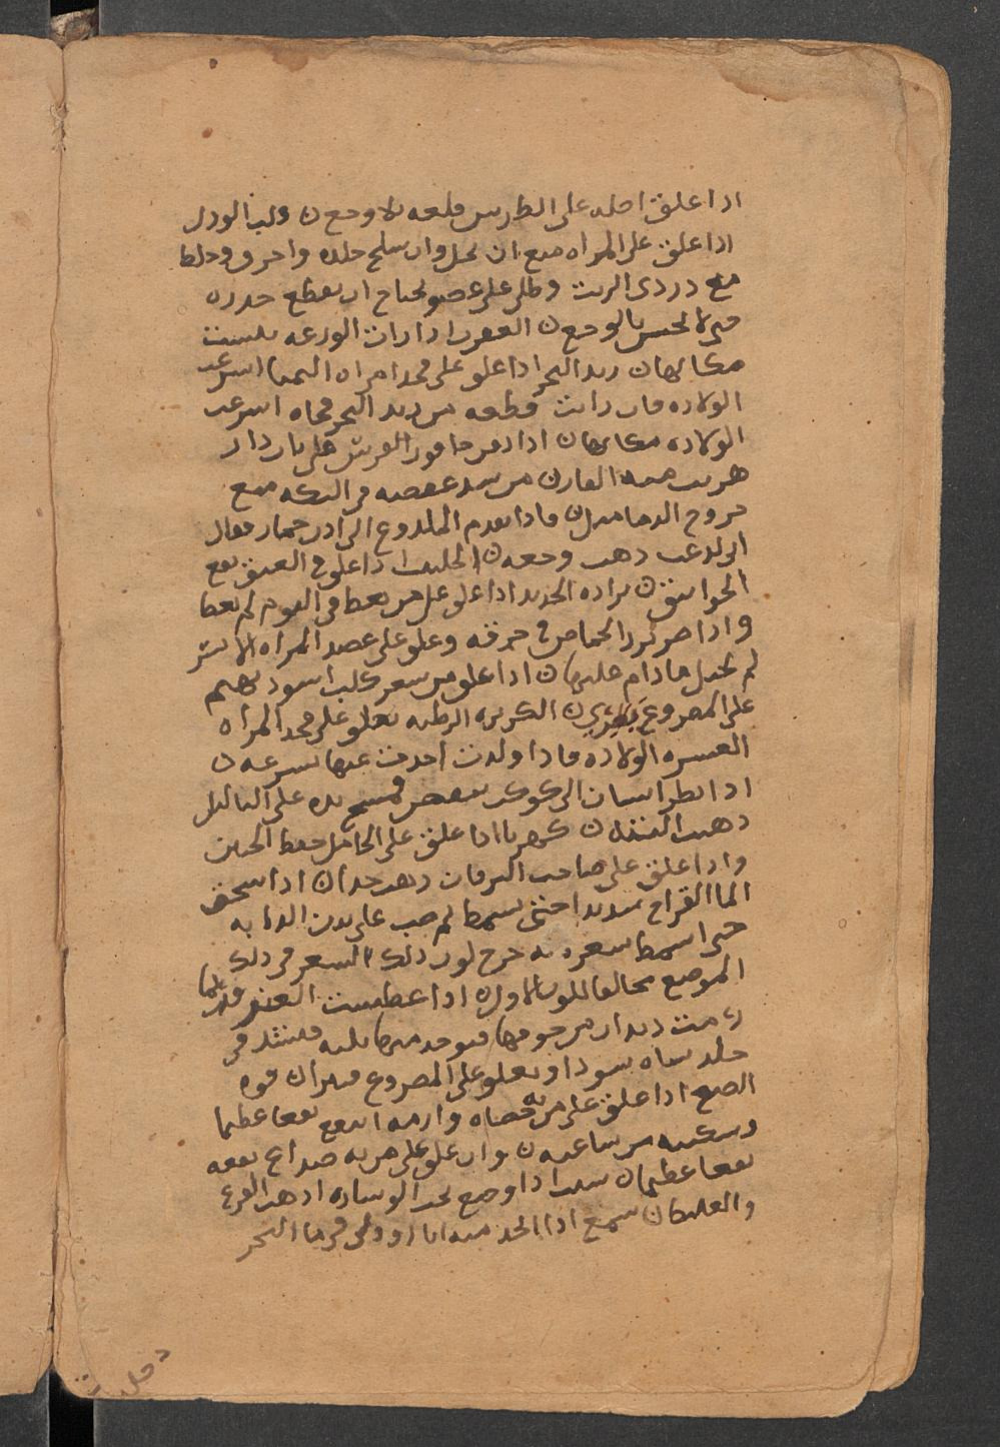 اذا علق اصله على الضرس قلعه بلا وجع ن قلب الورل
اذا علق على المراه منع ان تحبل وان سلخ جلده واحرق وخلط
مع دردى الزيت وطلى على عضو تحتاج ان يقطع خدره
حتى لا يحس بالوجع ن العقرب اذا رات الوزغه يبست
مكانها ن زبد البحر اذا علق على فخد امراه اليمنا اسرعت
الولاده فان رات قطعه من زبد البحر فجاه اسرعت
الولاده مكانها ن اذا دفن حافور الفرس على باب دار
هربت منه الفار ن من شد عفصه في التكه منع
خروج الدماميل ن فاذا تقدم الملدوغ الى اذن حمار فقال
انى لدغت ذهب وجعه ن الحلتيت اذا علق في العنق نفع
الخوانيق ن براده الحديد اذا علق على من يغط في النوم لم يغط
واذا صر بزر الحماض في خرقه وعلق على عضد المراه الايسر
لم تحبل ما دام عليها ن اذا علق من شعر كلب اسود بهيم
على المصروع ن الكزبره الرطبه تعلق على فخد المراه
العسره الولاده فاذا ولدت اخذت عنها بسرعه ن
اذا نظر انسان الى كوكب ينقض فمسح يده على الثالیل
ذهبت ن كهربا اذا علق على الحامل حفظ الجنين
واذا علق على صاحب اليرقان دهب جدا ن اذا سخن
الما القراح شديدا حتى يسمط ثم صب على بدن الدابه
حتى اسمط شعره نه خرج لون ذلك الشعر في ذلك
الموضع مخالفا للون الاول ن اذا عطست العنز فربما
رمت ديدان من جوفها فيوخد منها ثلثه فتشد في
جلد شاه سودا وتعلق على المصروع فيبرا ن قوه
الصبغ اذا علق على من به حصاه وازمه انتفع نفعا عظيما
وسكنه من ساعته ن وان علق على من به صداع نفعه
نفعا عظيما ن سداب اذا وضع تحت الوساده اذهب الفزع
والغطيط ن سمع اذا اتخذ منه انا او ورمى في ما البحر
دخل